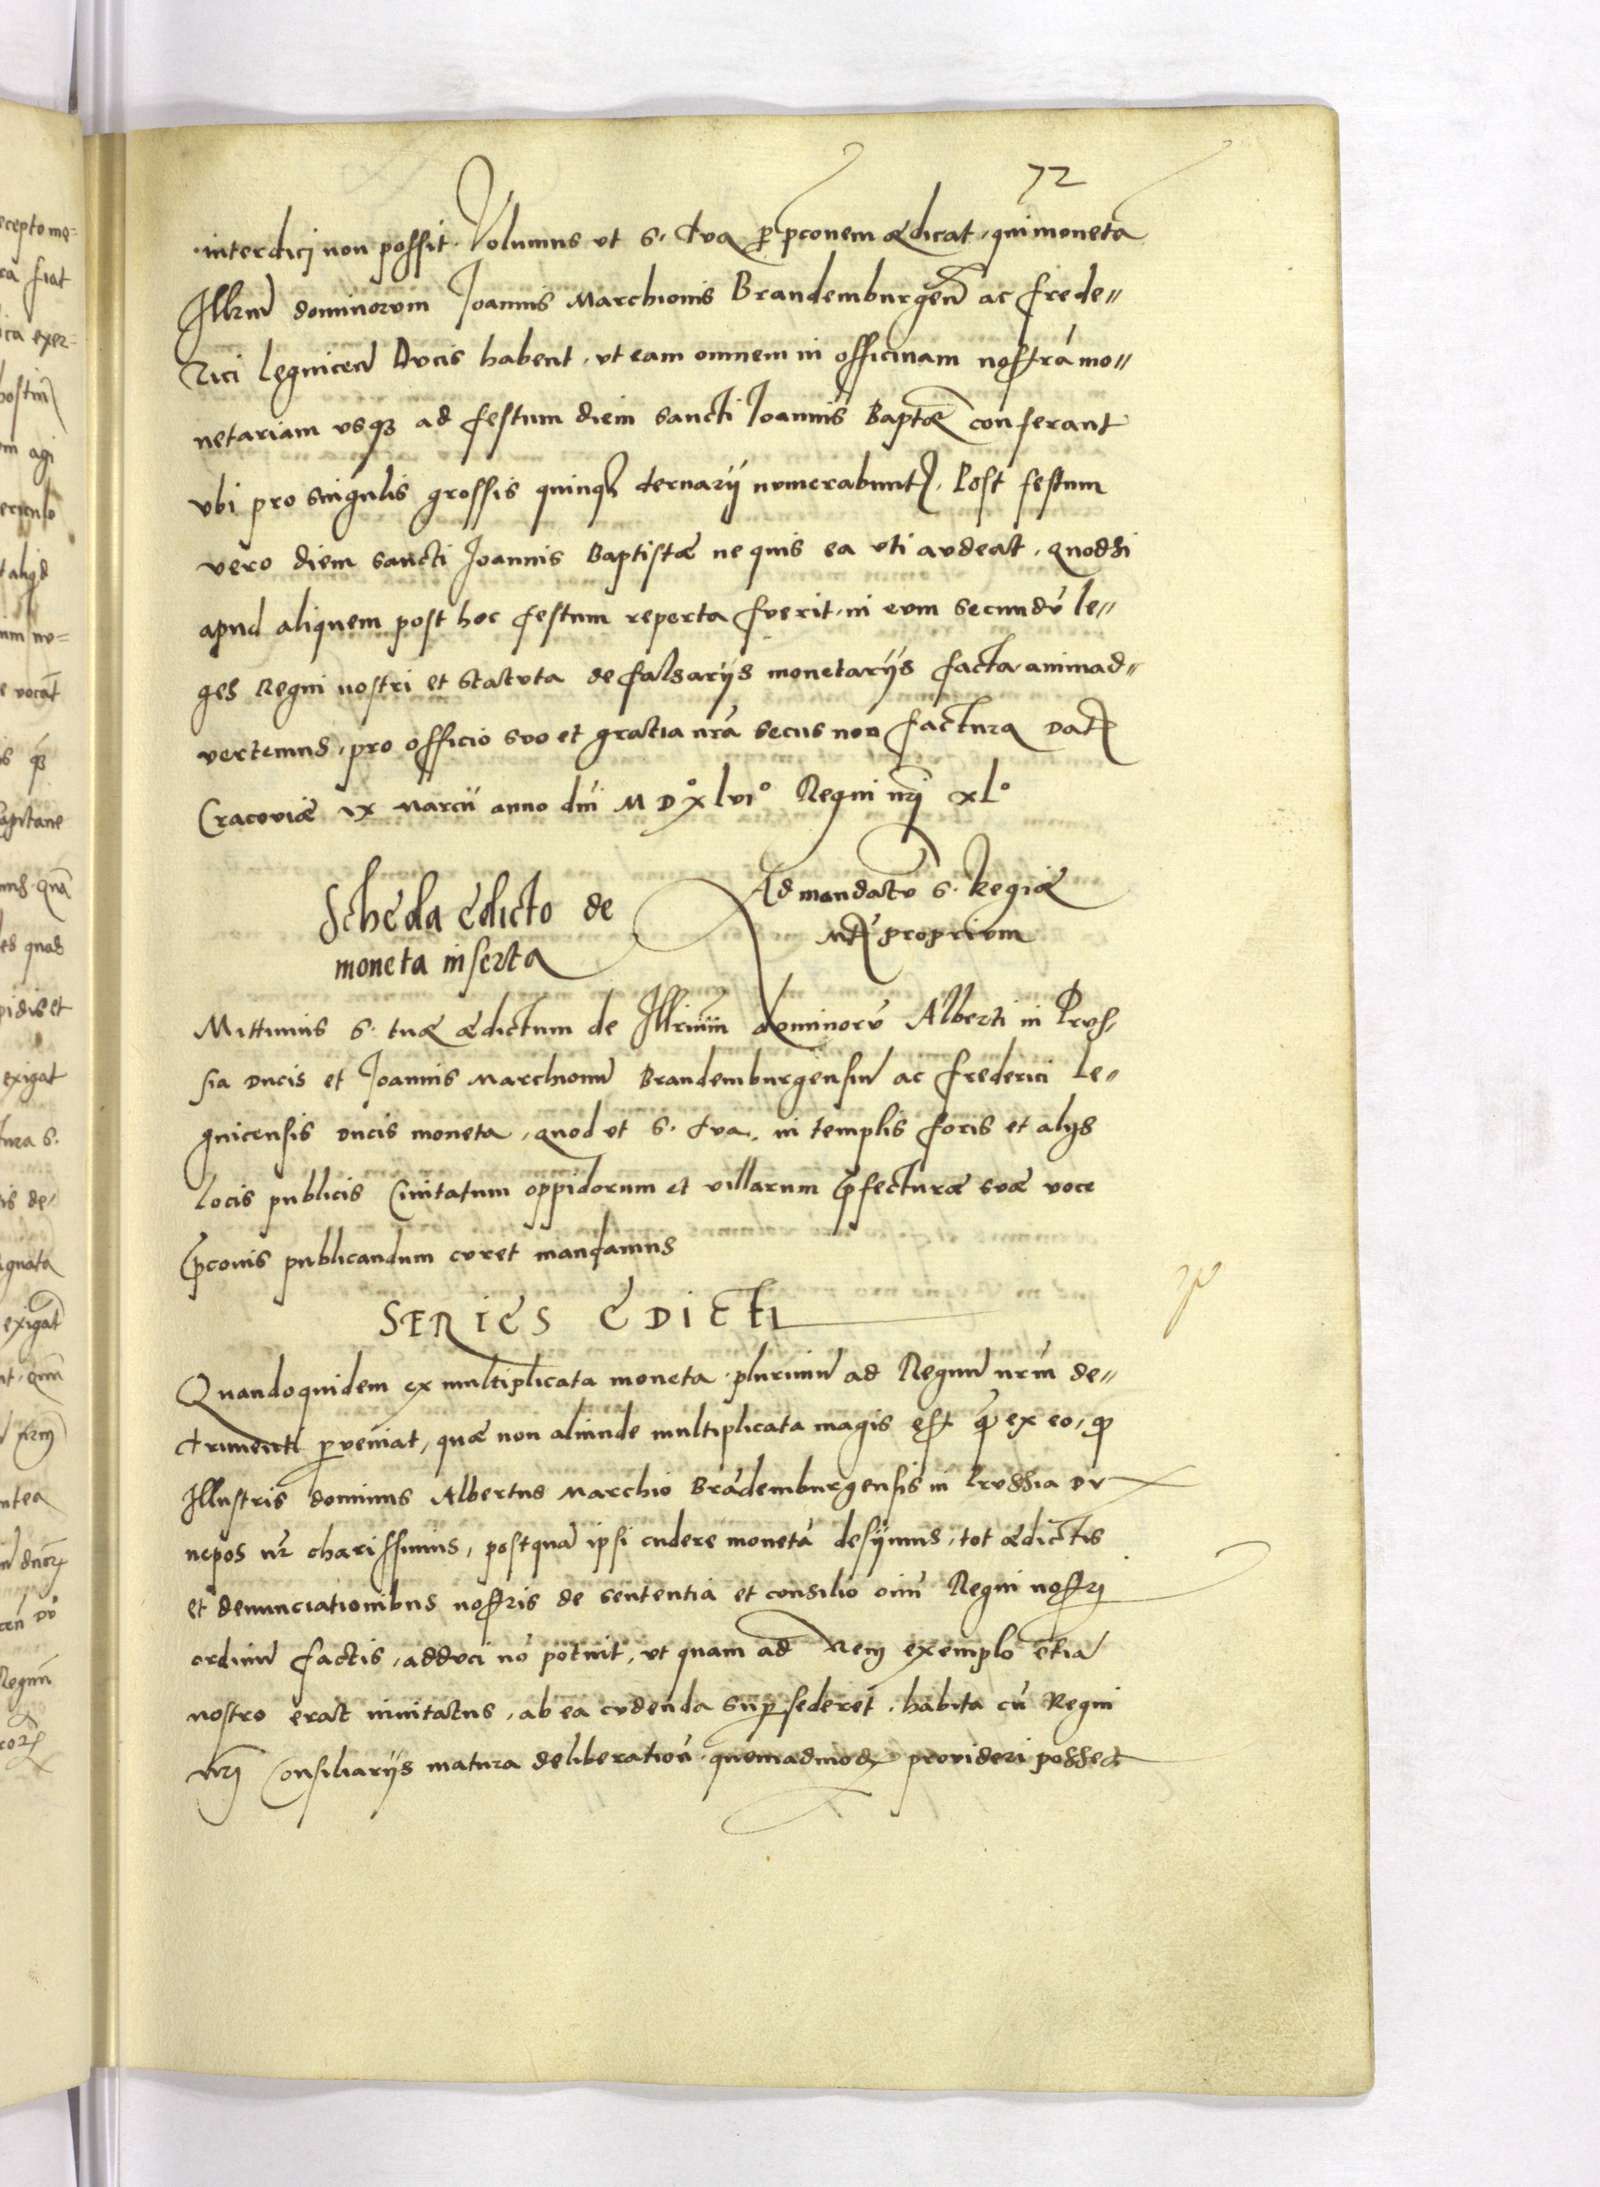 72
interdicj non possit. Volumus vt S. tua p pconem ædicat, qui monetā
Illrm̄ dominorum Joannis Marchionis Brandemburgen̄ ac Frede=
rici Legnicen̄ Ducis habent, vt eam omnem in officinam nostrā mo=
netariam usqꝫ ad festum diem Sancti Joannis Baptæ conferant
vbi pro singulis grossis quinqꝫ ternarij numerabuntꝛ. Post festum
vero diem Sancti Joannis Baptistæ ne quis ea vti audeat, quodsi
apud aliquem post hoc festum reperta fuerit, in eum secundū le=
ges Regni nostri et statuta de falsarijs monetarijs facta animad=
vertemus, pro officio suo et gratia nrā secus non factura Datꝭ
Cracoviæ ix Marcii anno dnī M D° xlvi° Regni nrj xl°
Ad mandatū S. Regiæ
Mtꝭ proprium
Scheda edicto de
moneta inserta
Mittimus S. tuæ ædictum de Illrimm̄ dominorū Alberti in Prus,
sia Ducis et Joannis Marchionū Brandemburgensiū ac Frederici Le=
gnicensis Ducis moneta, quod vt S. tua, in templis foris et alijs
locis publicis Civitatum oppidorum et villarum p̄fecturæ suæ voce
p̄conis publicandum curet mandamus
SERIES EDICTI
Quandoquidem ex multiplicata moneta plurimū ad Regnū nrm̄ de=
trimenti pveniat, quæ non aliunde multiplicata magis est q̄ ex eo, qꝫ
Illustris dominus Albertus Marchio Brādemburgensis in Prussia Du
nepos nr̄ charissimus, postquā ipsi cudere monetā desijmus, tot ædictis
et denunciationibus nostris de sententia et consilio oīm Regni nostrj
ordinū factis, adduci nō potuit, vt quam ad rem exemplo etiā
nostro erat invitatus, ab ea cudenda supsederet, habita cū Regni
nrj Consiliarijs matura deliberatiōē quemadmodꝫ provideri posset